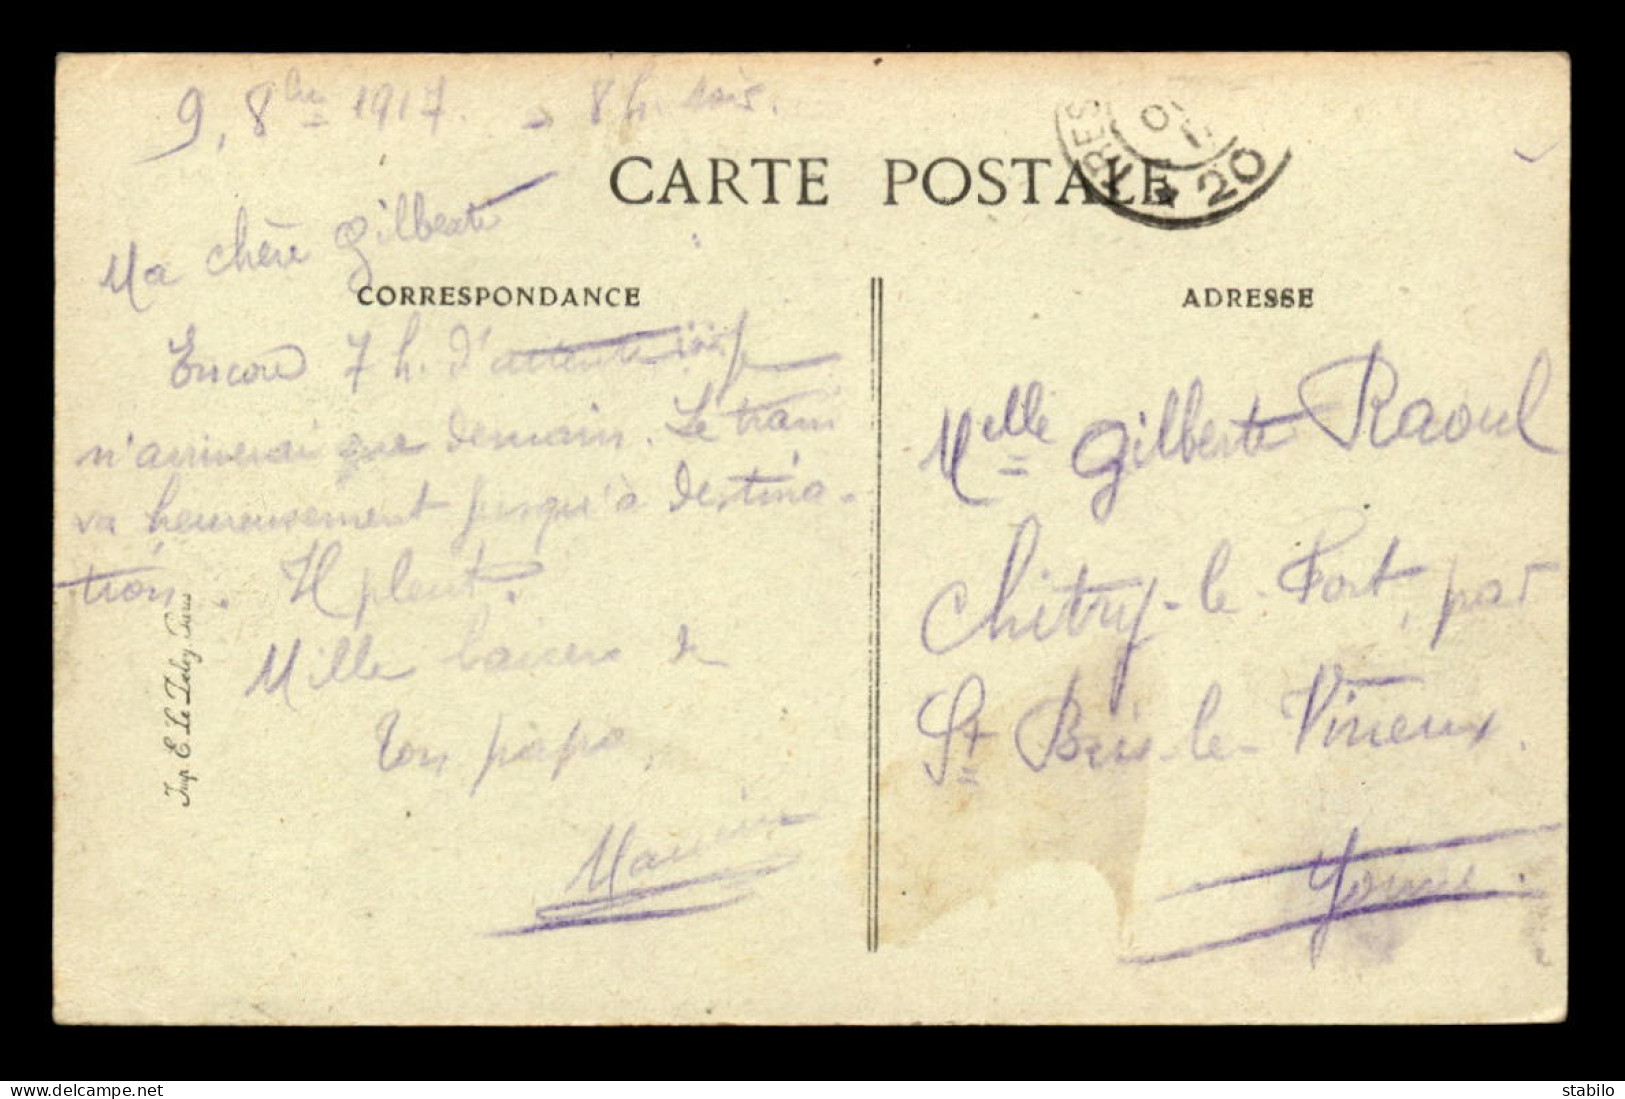 9, 8bre 1917. - 8 h. soir.
CARTE POSTALE
RES
20
Ma chère Gilberte
CORRESPONDANCE
ADRESSE
Encore 7 h. d'attente ici je
n'arriverai que demain. Le train
va heureusement jusqu'à destina-
tion. Il pleut.
Mille baisers de
ton papa,
Maurice
Imp. E. Le Deley, Paris
Melle Gilberte Raoul
Chitry-le-Fort, par
St Bris-le-Vineux.
Yonne.
delcampe.net
stabilo